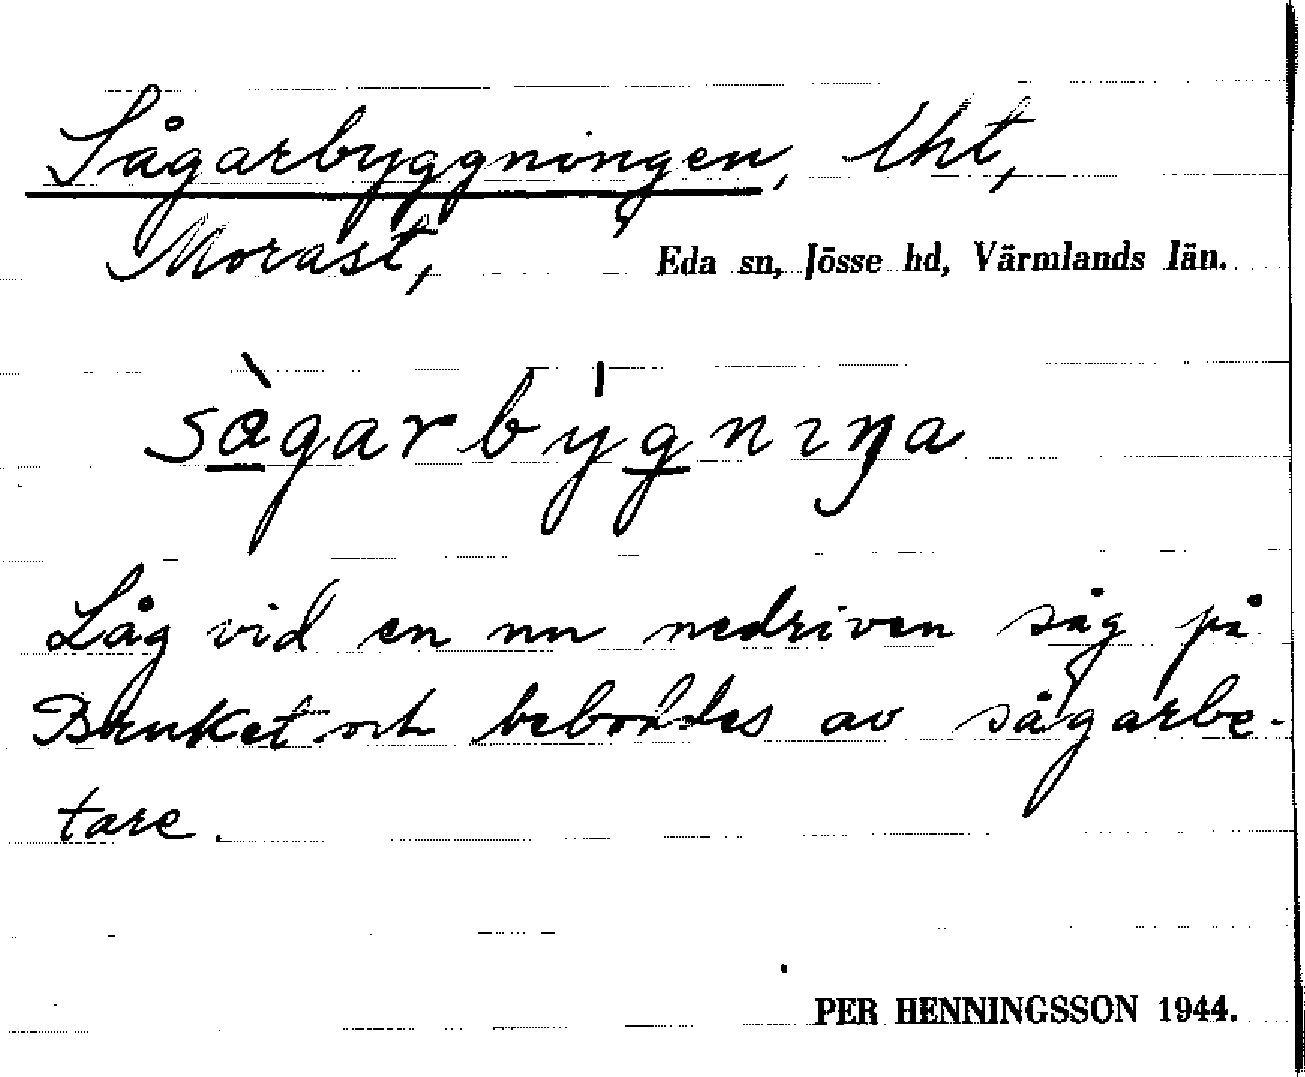 Sågarbygningen, lht,
Morast, Eda sn, Jösse hd, Värmlands län.
sågarbygniŋa
Låg vid en nu nedriven såg på
Bruket och beboddes av sågarbe-
tare.
PER HENNINGSSON 1944.